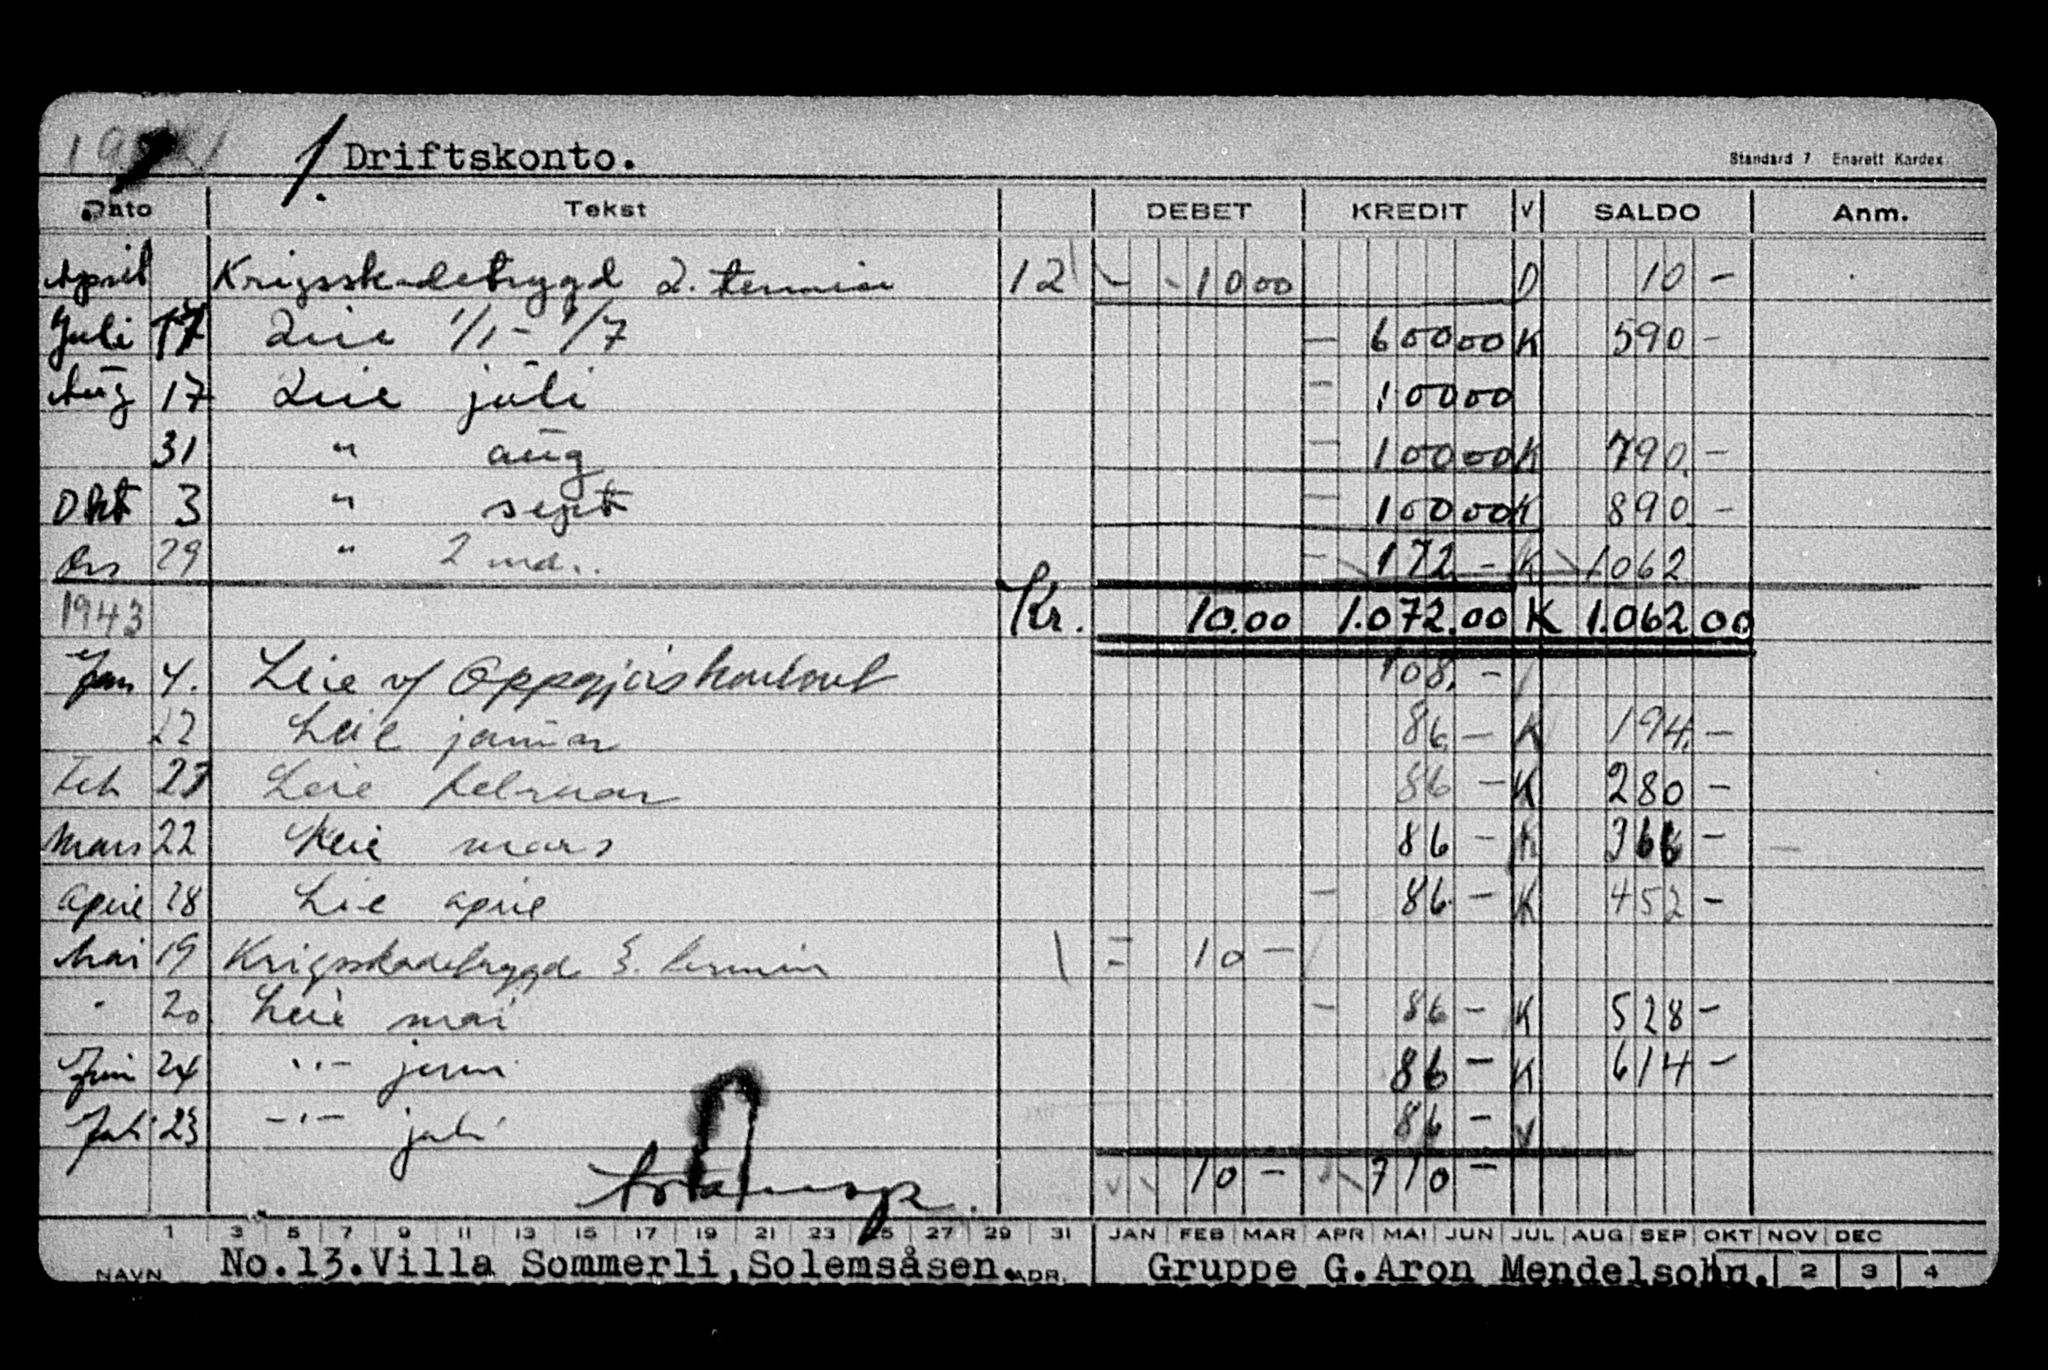 1. Driftskonto.
Standard 7 Enerett Kardex
Dato Tekst DEBET KREDIT V SALDO Anm.
April Krigsskadetrygd 2. termin 12 10 00 D 10 -
Juli 17 Leie 1/1 - 1/7 - 600 00 K 590 -
Aug 17 Leie juli - 100 00
31 " aug - 100 00 K 790 -
Okt 3 " sept - 100 00 K 890 -
Des 29 " 2 md. - 172 - K 1062
Kr. 10.00 1.072.00 K 1.062.00
1943
Jan 4. Leie v/ Oppgjørskontoret 108. -
22 Leie januar 86 - K 194. -
Feb 27 Leie februar 86 - K 280 -
Mars 22 Leie mars 86 - K 366 -
April 28 Leie april - 86 - K 452 -
Mai 19 Krigsskadetrygd 3. termin 10 -
" 20 Leie mai - 86 - K 528 -
Juni 24 -"- juni 86 - K 614 -
Juli 23 -"- juli 86 -
10 - 710 -
1 3 5 7 9 11 13 15 17 19 21 23 25 27 29 31 JAN FEB MAR APR MAI JUN JUL AUG SEP OKT NOV DEC
NAVN No.13.Villa Sommerli,Solemsåsen. ADR. Gruppe G.Aron Mendelsohn. 2 3 4